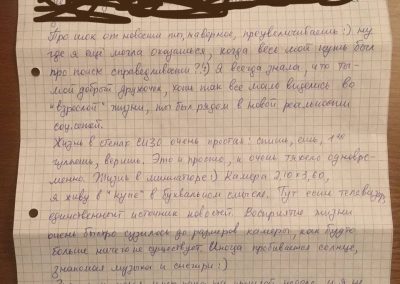 Про шок от новости ты, наверное, преувеличиваешь :). Ну
где я ещё могла оказаться, когда весь мой путь был
про поиск справедливости?!:) Я всегда знала, что ты-
мой добрый дружочек, хоть так все мало виделись во
"взрослой" жизни, ты был рядом в новой реальности
соц.сетей.
Жизнь в стенах СИЗО очень простая: спишь, ешь,
гуляешь, веришь. Это и просто, и очень тяжело одновре-
менно. Жизнь в миниатюре :) Камера 2,10 × 3,60,
я живу в "купе" в буквальном смысле. Тут есть телевизор,
единственный источник новостей. Восприятие жизни
очень быстро сузилось до размеров камеры, как будто
больше ничего не существует. Иногда пробивается солнце,
знакомая музыка и смотри :)